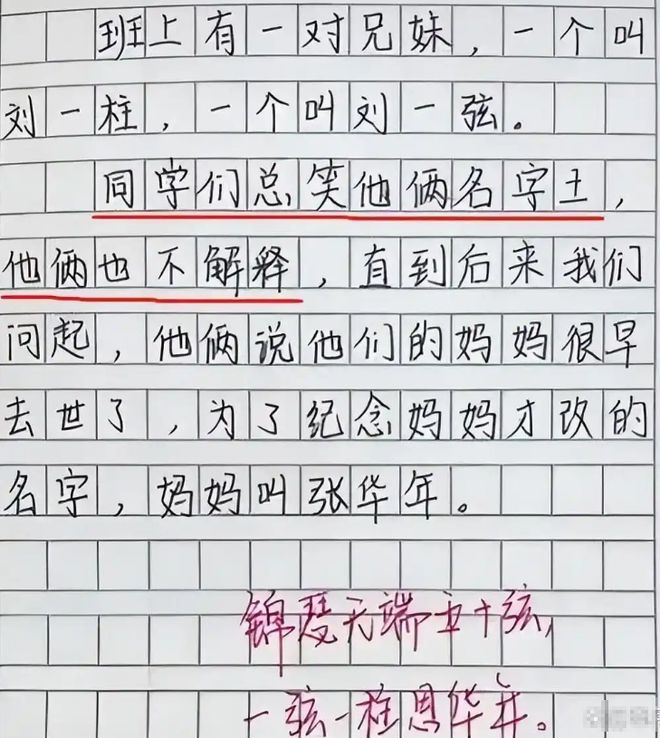 班上有一对兄妹，一个叫
刘一柱，一个叫刘一弦。
同学们总笑他俩名字土，
他俩也不解释，直到后来我们
问起，他俩说他们的妈妈很早
去世了，为了纪念妈妈才改的
名字，妈妈叫张华年。
锦瑟无端五十弦，
一弦一柱思华年。